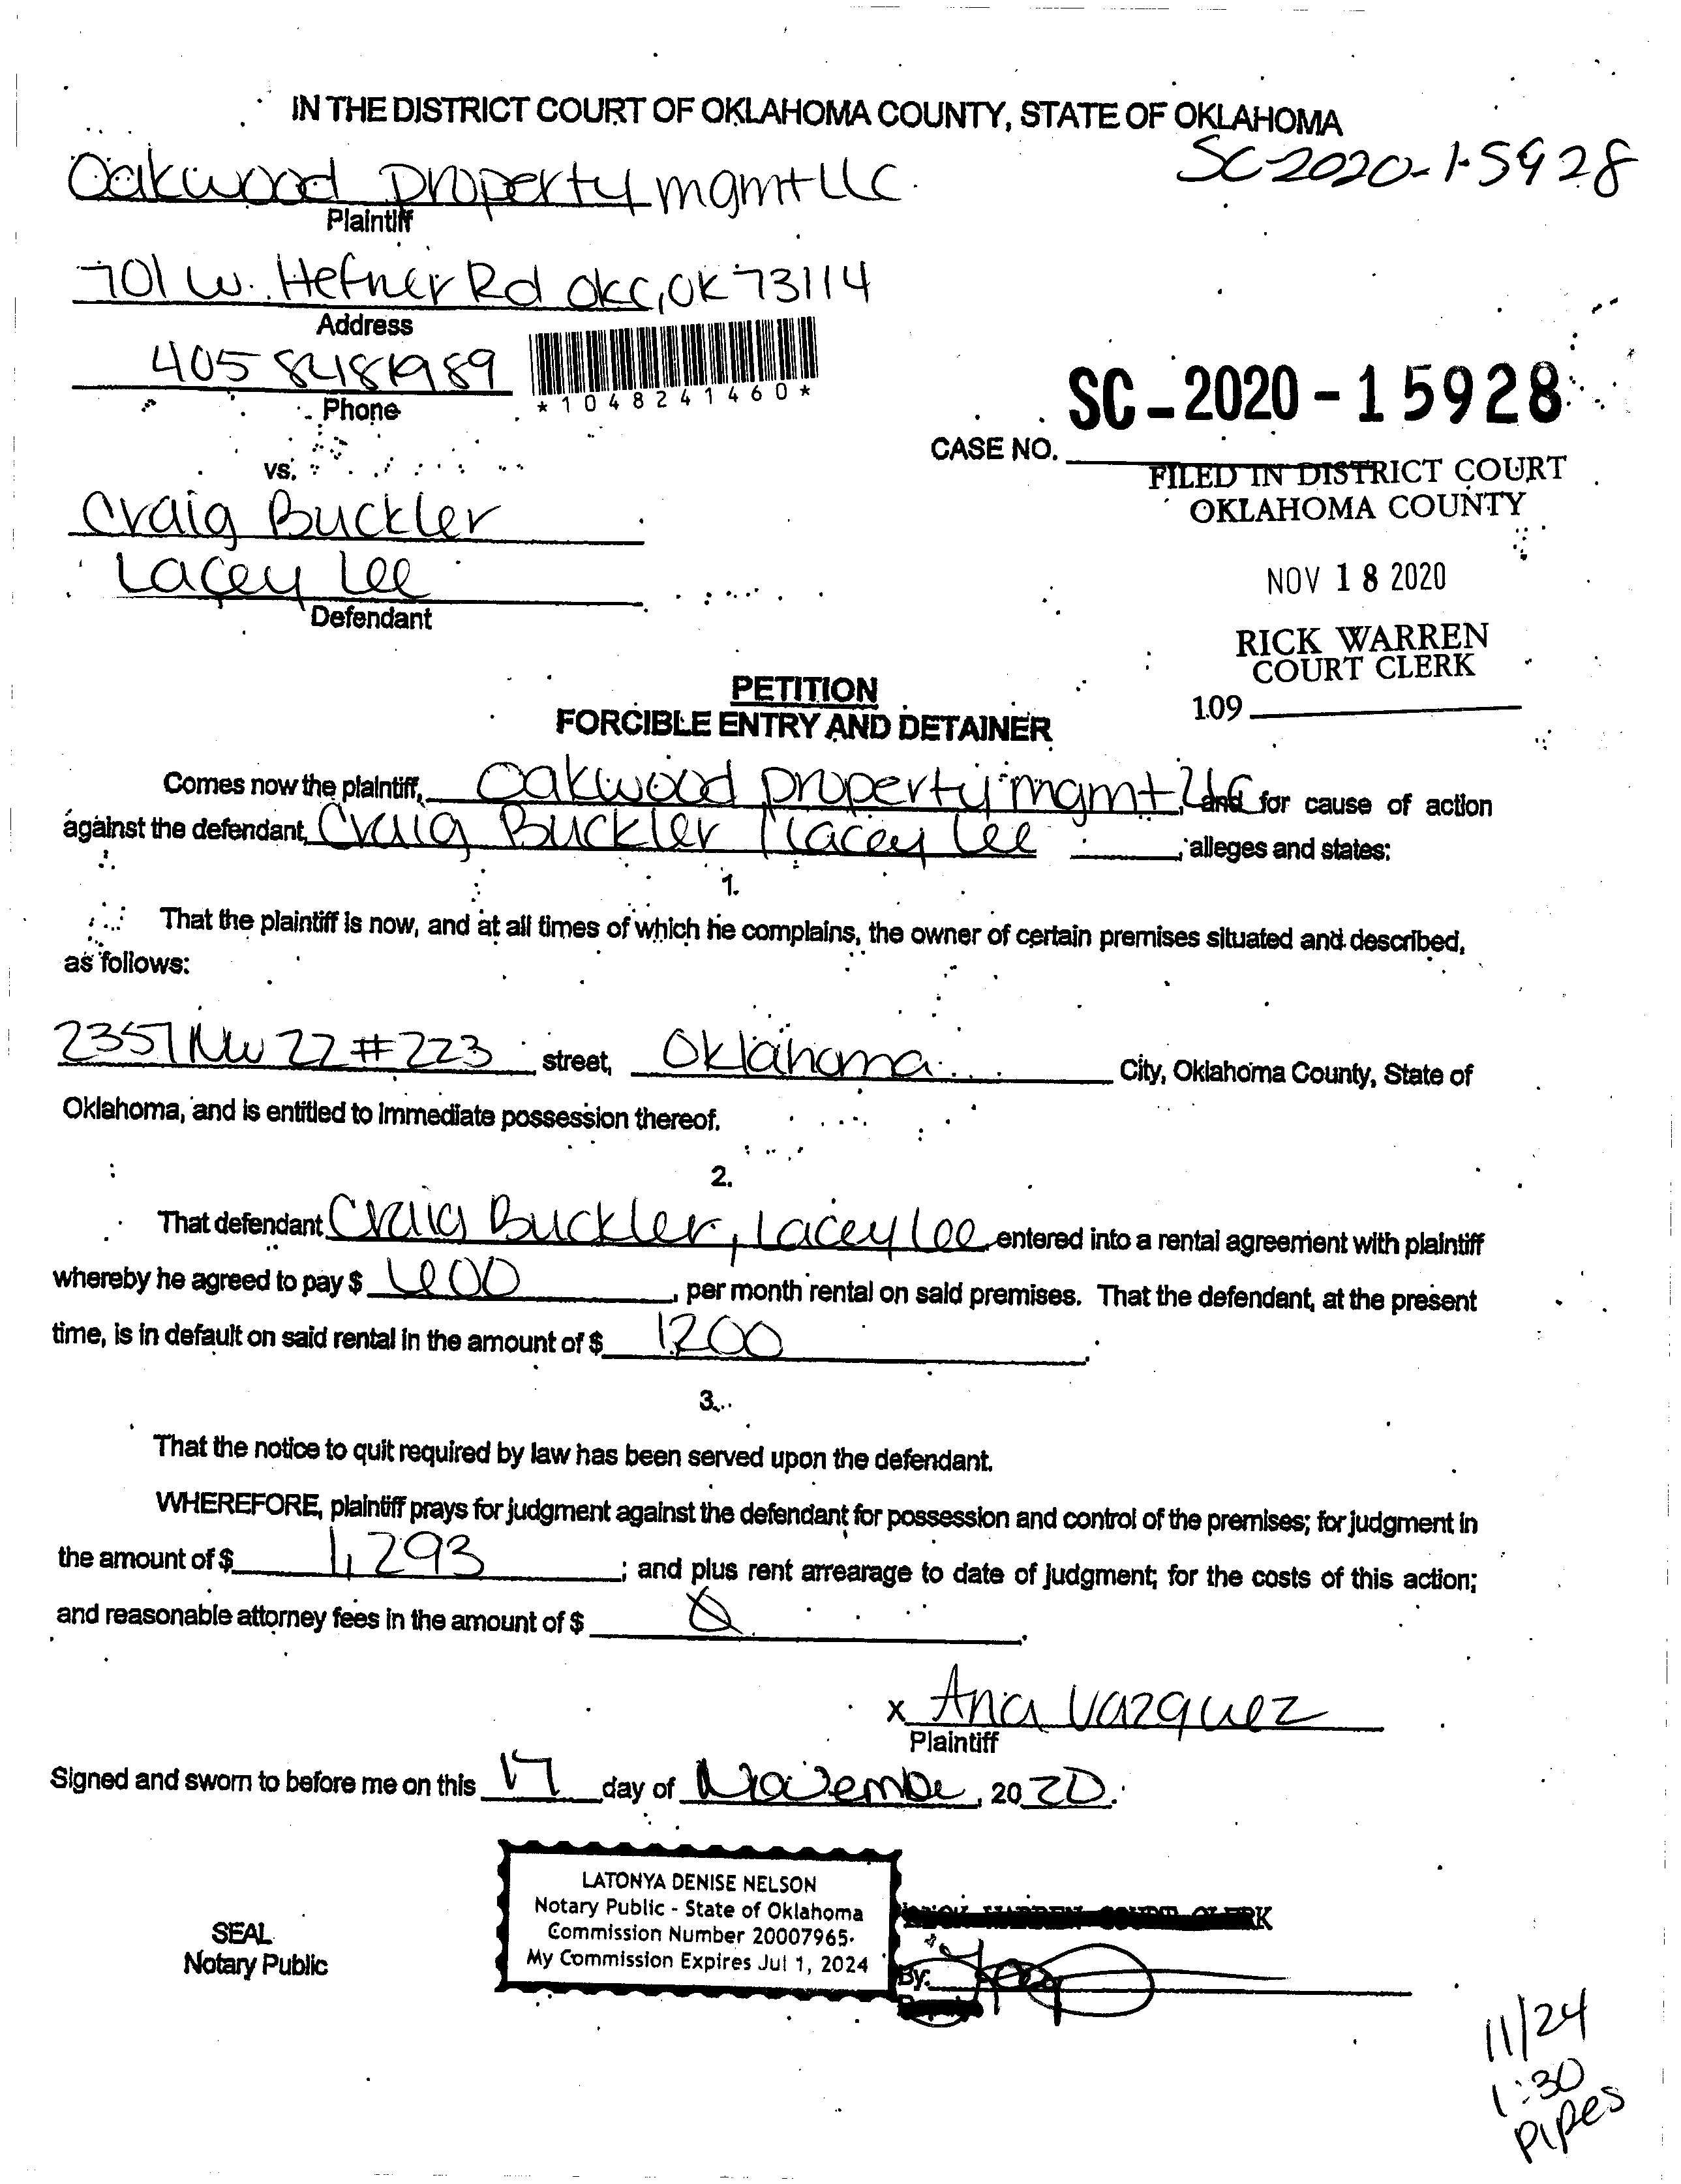 IN THE DISTRICT COURT OF OKLAHOMA COUNTY, STATE OF OKLAHOMA
SC-2020-15928
Oakwood property mgmt LLC
Plaintiff
701 W. Hefner Rd OKC, OK 73114
Address
405 8481989
Phone
*1048241460*
SC-2020-15928
CASE NO.
FILED IN DISTRICT COURT
OKLAHOMA COUNTY
vs.
Craig Buckler
Lacey Lee
Defendant
NOV 18 2020
RICK WARREN
COURT CLERK
109
PETITION
FORCIBLE ENTRY AND DETAINER
Comes now the plaintiff, Oakwood property mgmt, LLC and for cause of action
against the defendant, Craig Buckler / Lacey Lee, alleges and states:
1.
That the plaintiff is now, and at all times of which he complains, the owner of certain premises situated and described,
as follows:
2357 NW 22 #223 street, Oklahoma City, Oklahoma County, State of
Oklahoma, and is entitled to immediate possession thereof.
2.
That defendant Craig Buckler, Lacey Lee entered into a rental agreement with plaintiff
whereby he agreed to pay $ 600, per month rental on said premises. That the defendant, at the present
time, is in default on said rental in the amount of $ 1200.
3.
That the notice to quit required by law has been served upon the defendant.
WHEREFORE, plaintiff prays for judgment against the defendant for possession and control of the premises; for judgment in
the amount of $ 1,293; and plus rent arrearage to date of judgment; for the costs of this action;
and reasonable attorney fees in the amount of $ 0.
x Ana Vazquez
Plaintiff
Signed and sworn to before me on this 17 day of Novembe, 2020.
LATONYA DENISE NELSON
Notary Public - State of Oklahoma
Commission Number 20007965
My Commission Expires Jul 1, 2024
SEAL
Notary Public
RICK WARREN COURT CLERK
By:
11/24
1:30
Pipes